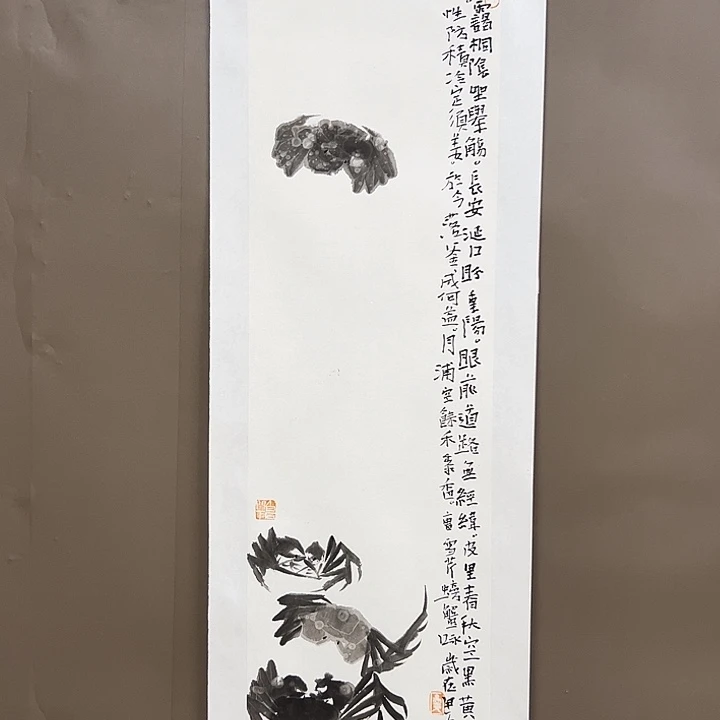 靄桐陰坐舉觴。長安涎口盼重陽。眼前道路無經緯。皮里春秋空黑黃
性防積冷定須姜。於今落釜成何益。月浦空餘禾黍香。曹雪芹螃蟹咏歲在甲